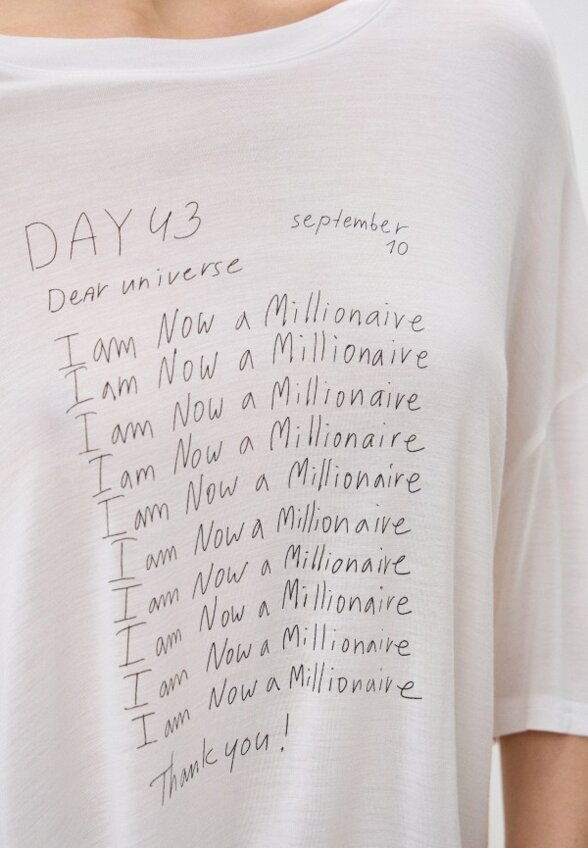 DAY 43 september
10
Dear universe
I am Now a Millionaire
I am Now a Millionaire
I am Now a Millionaire
I am Now a Millionaire
I am Now a Millionaire
I am Now a Millionaire
I am Now a Millionaire
I am Now a Millionaire
I am Now a Millionaire
I am Now a Millionaire
Thank you!